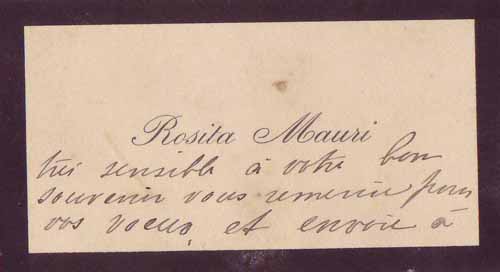 Rosita Mauri
très sensible à votre bon
souvenir vous remercie pour
vos voeux, et envoie à